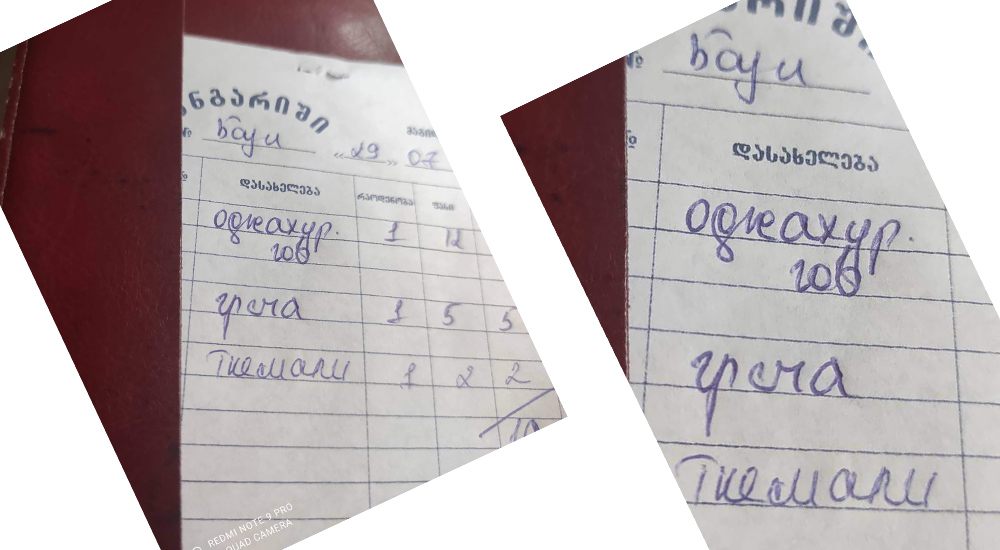 ანგარიში
№ Бауи „29„ 07
№ დასახელება რაოდენობა ფასი
Оджахур. 1 12
гов
греча 1 5 5
Ткемали 1 2 2
REDMI NOTE 9 PRO
QUAD CAMERA
არიში
№ Бауи
№ დასახელება
Оджахур.
гов
греча
Ткемали